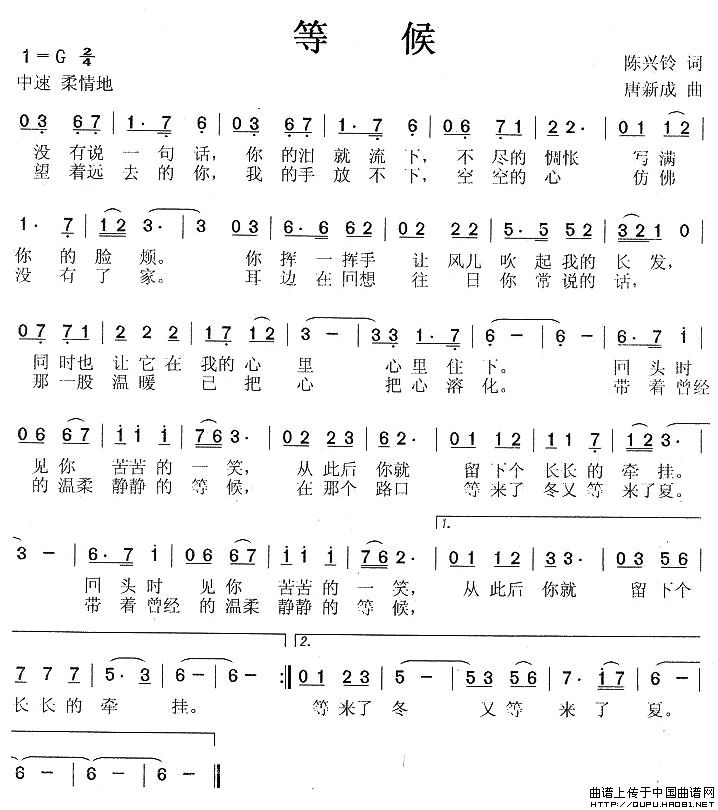 等 候
1=G 2/4
陈兴铃 词
中速 柔情地
唐新成 曲
03 67 | 1· 7 6 | 03 67 | 1· 7 6 | 06 71 | 22· | 01 12 |
没有说一句话, 你的泪就流下, 不尽的惆怅 写满
望着远去的你, 我的手放不下, 空空的心 仿佛
1· 7 | 12 3· | 3 03 | 6· 6 62 | 02 22 | 5· 5 52 | 321 0 |
你的脸烦。 你挥一挥手 让风儿吹起我的长发,
没有了家。 耳边在回想 往日你常说的话,
07 71 | 2 2 2 | 17 12 | 3 - | 33 1·7 | 6 - | 6 - | 6·7 i |
同时也让它在我的心里 心里住下。 回头时
那一股温暖 已把心 把心溶化。 带着曾经
06 67 | i i i | 763· | 02 23 | 62· | 01 12 | 11 7 | 12 3· |
见你 苦苦的一笑, 从此后你就 留下个长长的牵挂。
的温柔静静的等候, 在那个路口 等来了冬又等来了夏。
1.
3 - | 6·7 i | 06 67 | i i i | 762· | 01 12 | 33· | 03 56 |
回头时 见你 苦苦的一笑, 从此后你就 留下个
带着曾经的温柔静静的等候,
2.
7 77 | 5·3 | 6 - | 6 - :| 01 23 | 5 - | 53 56 | 7· i7 | 6 - |
长长的牵挂。 等来了冬 又等来了夏。
6 - | 6 - | 6 - |
曲谱上传于中国曲谱网
HTTP://QUPU.HAO81.NET